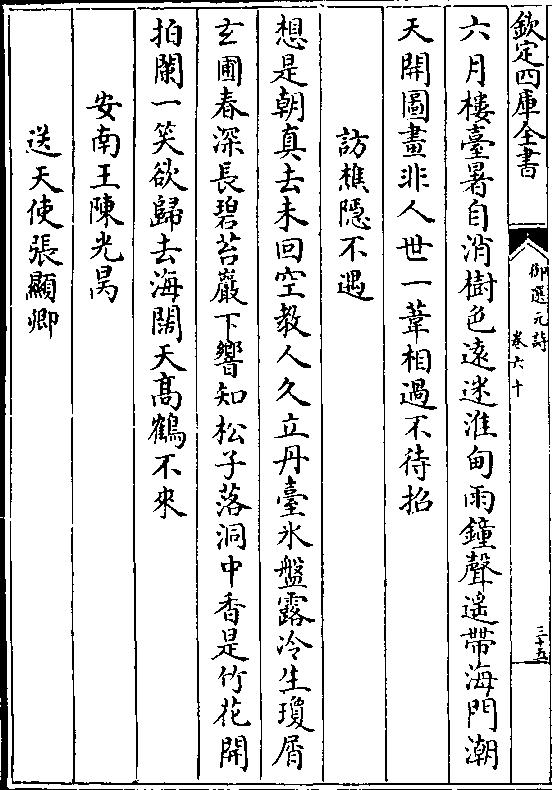 欽定四庫全書
御選元詩
卷六十
三十五
六月樓臺暑自消樹色遠迷淮甸雨鐘聲遙帶海門潮
天開圖畫非人世一葦相過不待招
訪樵隱不遇
想是朝真去未回空教人久立丹臺氷盤露冷生瓊屑
玄圃春深長碧苔巖下響知松子落洞中香是竹花開
拍闌一笑欲歸去海闊天髙鶴不來
安南王陳光昺
送天使張顯卿